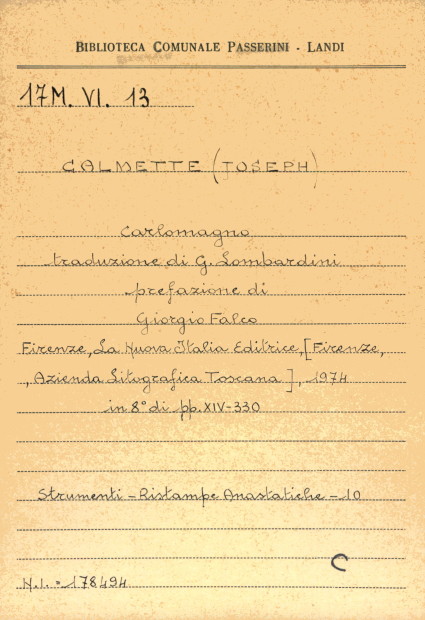 BIBLIOTECA COMUNALE PASSERINI - LANDI
17M. VI. 13
CALMETTE (JOSEPH)
Carlomagno
traduzione di G. Lombardini
prefazione di
Giorgio Falco
Firenze, La Nuova Italia Editrice, [Firenze,
, Azienda Litografica Toscana], 1974
in 8° di pp. XIV-330
Strumenti - Ristampe Anastatiche - 10
C
N.I. = 178494